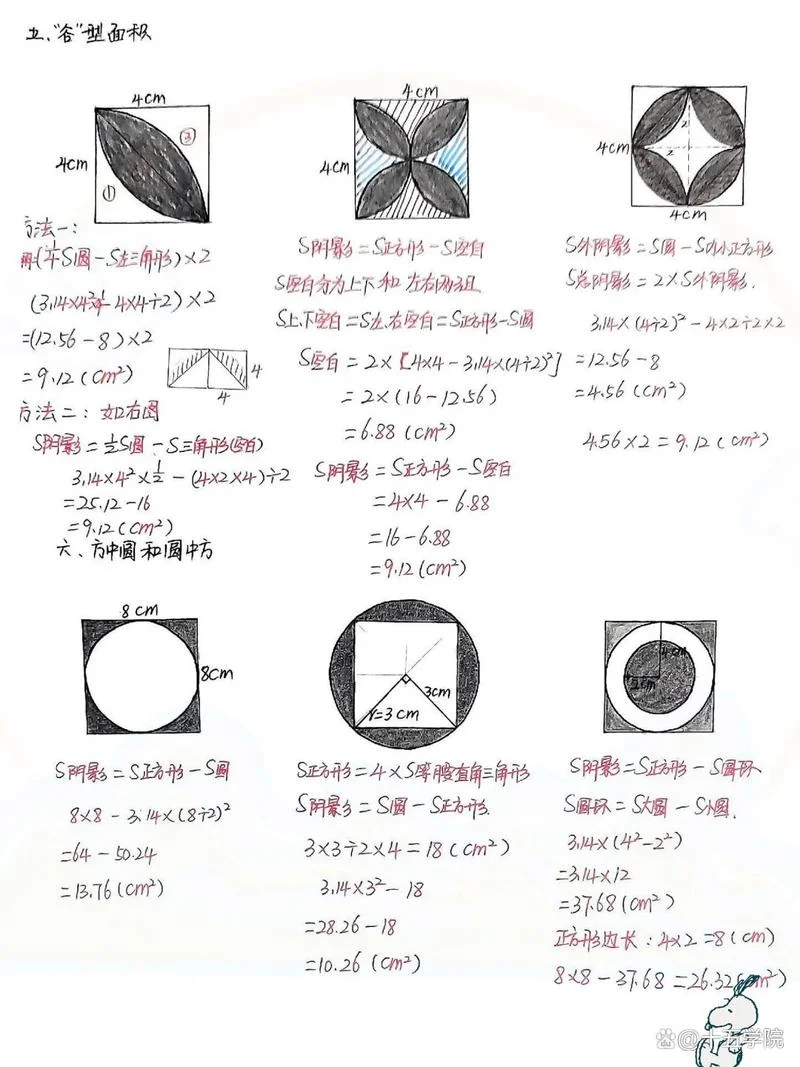 五、"谷"型面积
4cm
4cm
①
②
方法一：
(¼S圆-S左三角形)×2
(3.14×4²×¼-4×4÷2)×2
=(12.56-8)×2
=9.12(cm²)
4
4
方法二：如右图
S阴影=½S圆-S三角形(空白)
3.14×4²×½-(4×2×4)÷2
=25.12-16
=9.12(cm²)
4cm
4cm
S阴影=S正方形-S空白
S空白分为上下和左右两组
S上.下空白=S左.右空白=S正方形-S圆
S空白=2×[4×4-3.14×(4÷2)²]
=2×(16-12.56)
=6.88(cm²)
S阴影=S正方形-S空白
=4×4-6.88
=16-6.88
=9.12(cm²)
4cm
2
2
4cm
S外阴影=S圆-S小正方形
S总阴影=2×S外阴影.
3.14×(4÷2)²-4×2÷2×2
=12.56-8
=4.56(cm²)
4.56×2=9.12(cm²)
六、方中圆和圆中方
8cm
8cm
S阴影=S正方形-S圆
8×8-3.14×(8÷2)²
=64-50.24
=13.76(cm²)
3cm
r=3cm
S正方形=4×S等腰直角三角形
S阴影=S圆-S正方形.
3×3÷2×4=18(cm²)
3.14×3²-18
=28.26-18
=10.26(cm²)
4cm
2cm
S阴影=S正方形-S圆环
S圆环=S大圆-S小圆.
3.14×(4²-2²)
=3.14×12
=37.68(cm²)
正方形边长：4×2=8(cm)
8×8-37.68=26.32(cm²)
十五学院